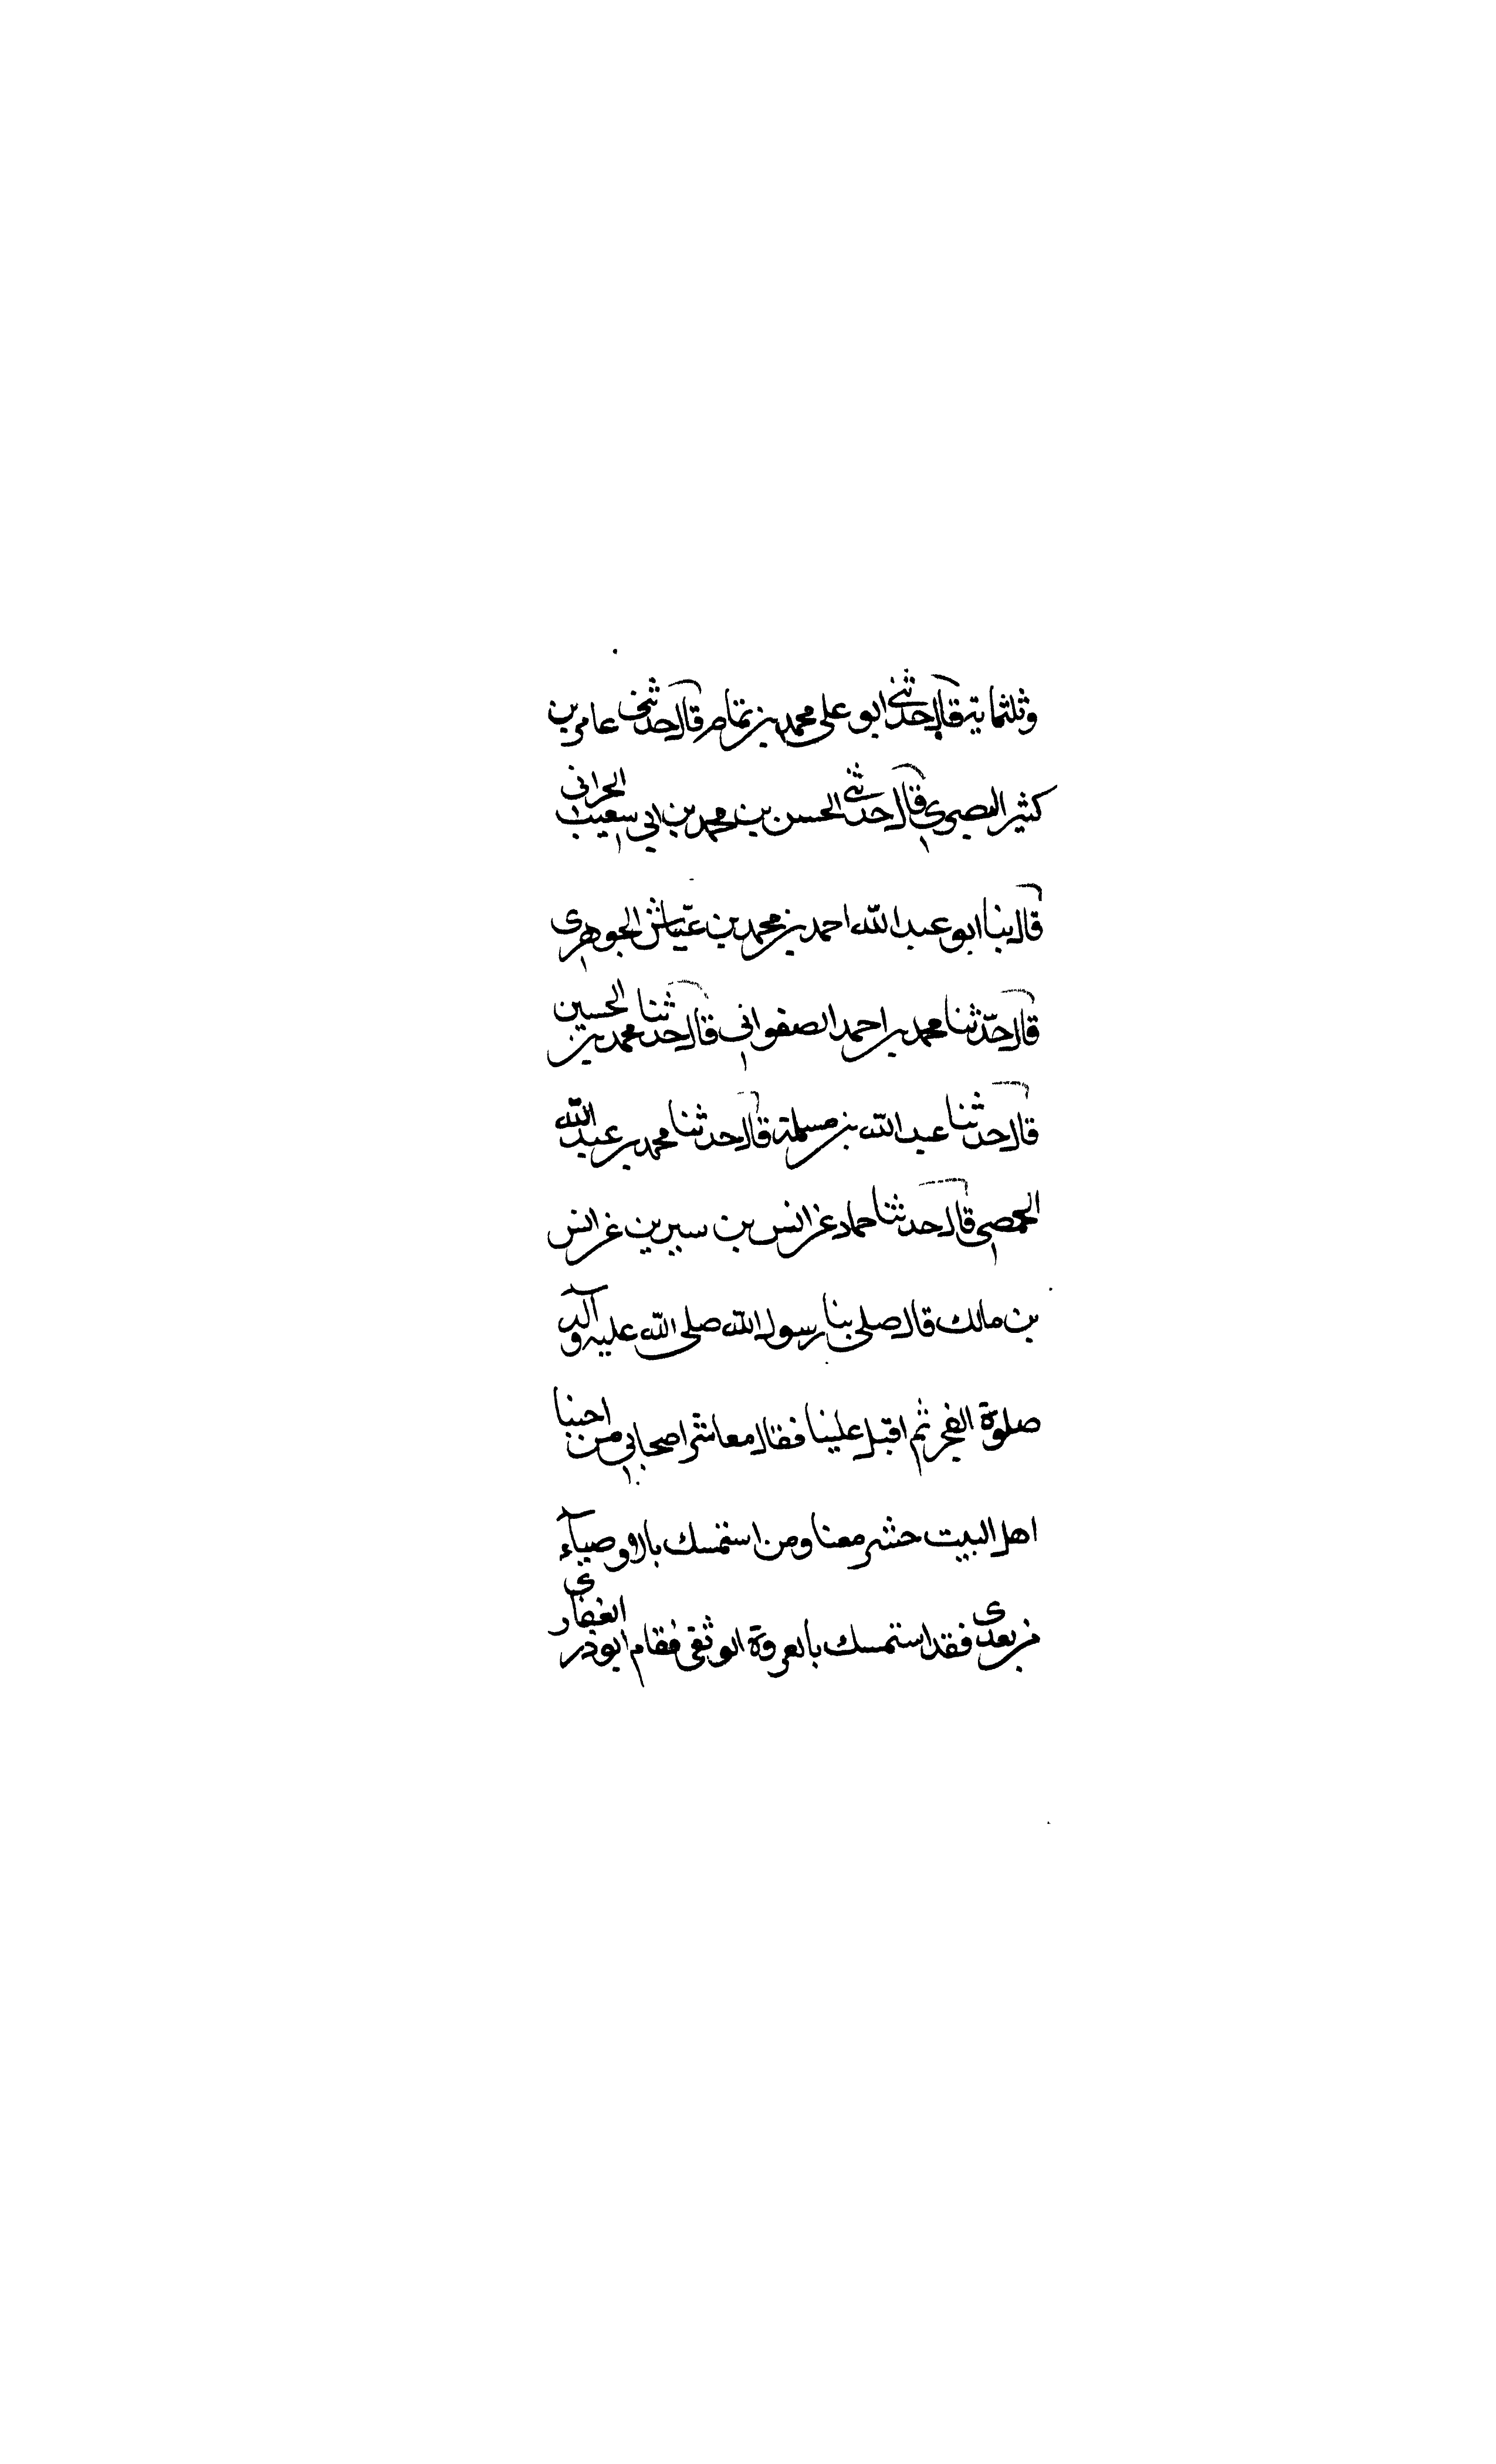 وثلثماية قال حدثني ابو على محمد بن تمام قال حدثنى عامر بن
كثير البصرى قال حدثنى الحسن بن محمد بن ابي شعيب الحرانى
قال بنا ابو عبد الله احمد بن محمد بن عيّاش الجوهرى
قال حدّثنا محمد بن احمد الصفوانى قال حدثنا محمد بن الحسين
قال حدثنا عبد الله بن مسلمة قال حدثنا محمد بن عبد الله
الحمصى قال حدثنا حماد عن انس بن سيرين عن انس
بن مالك قال صلى بنا رسول الله صلى الله عليه وآله
صلوة الفجر ثم اقبل علينا فقال معاشر اصحابي من احبنا
اهل البيت حشر معنا ومن استمسك بالاوصيآء
من بعدى فقد استمسك بالعروة الوثقى فقام ابوذر الغفارى